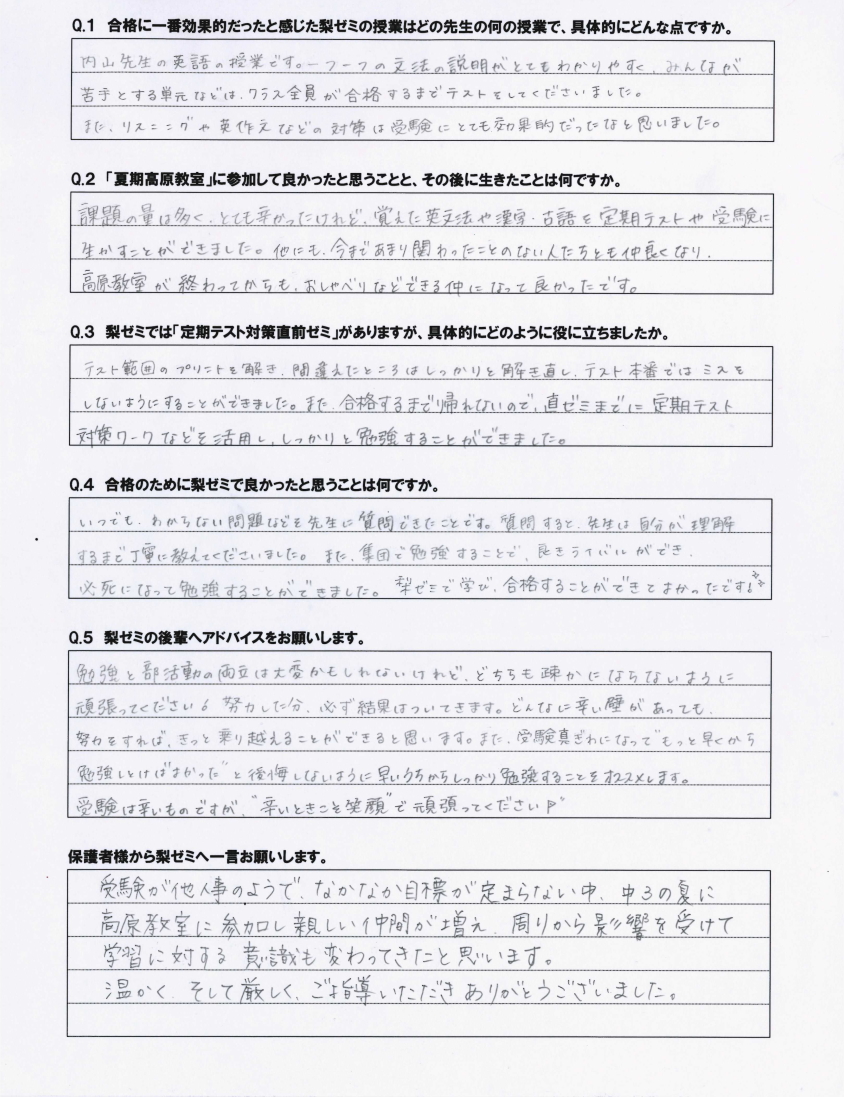 Q.1 合格に一番効果的だったと感じた梨ゼミの授業はどの先生の何の授業で、具体的にどんな点ですか。
内山先生の英語の授業です。一つ一つの文法の説明がとてもわかりやすく、みんなが
苦手とする単元などは、クラス全員が合格するまでテストをしてくださいました。
また、リスニングや英作文などの対策は受験にとても効果的だったなと思いました。
Q.2 「夏期高原教室」に参加して良かったと思うことと、その後に生きたことは何ですか。
課題の量は多く、とても辛かったけれど、覚えた英文法や漢字・古語を定期テストや受験に
生かすことができました。他にも、今まであまり関わったことのない人たちとも仲良くなり、
高原教室が終わってからも、おしゃべりなどできる仲になって良かったです。
Q.3 梨ゼミでは「定期テスト対策直前ゼミ」がありますが、具体的にどのように役に立ちましたか。
テスト範囲のプリントを解き、間違えたところはしっかりと解き直し、テスト本番ではミスを
しないようにすることができました。また、合格するまで帰れないので、直ゼミまでに定期テスト
対策ワークなどを活用し、しっかりと勉強することができました。
Q.4 合格のために梨ゼミで良かったと思うことは何ですか。
いつでも、わからない問題などを先生に質問できたことです。質問すると、先生は自分が理解
するまで丁寧に教えてくださいました。また、集団で勉強することで、良きライバルができ、
必死になって勉強することができました。梨ゼミで学び、合格することができてよかったです!
Q.5 梨ゼミの後輩へアドバイスをお願いします。
勉強と部活動の両立は大変かもしれないけれど、どちらも疎かにならないように
頑張ってください! 努力した分、必ず結果はついてきます。どんなに辛い壁があっても、
努力をすれば、きっと乗り越えることができると思います。また、受験真ぎわになって"もっと早くから
勉強しとけばよかった"と後悔しないように早いうちからしっかり勉強することをオススメします。
受験は辛いものですが、"辛いときこそ笑顔"で頑張ってください
保護者様から梨ゼミへ一言お願いします。
受験が他人事のようで、なかなか目標が定まらない中、中3の夏に
高原教室に参加し親しい仲間が増え、周りから影響を受けて
学習に対する意識も変わってきたと思います。
温かく、そして厳しく、ご指導いただきありがとうございました。